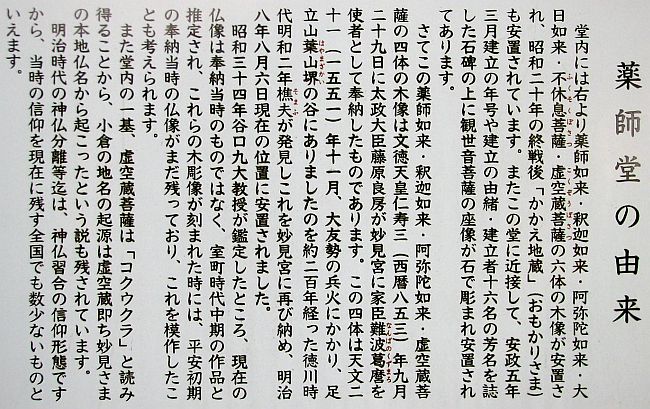 薬師堂の由来
堂内には右より薬師如来・釈迦如来・阿弥陀如来・大
日如来・不休息菩薩・虚空蔵菩薩の六体の木像が安置さ
れ、昭和二十年の終戦後「かかえ地蔵」（おもかりさま）
も安置されています。またこの堂に近接して、安政五年
三月建立の年号や建立の由緒・建立者十六名の芳名を誌
した石碑の上に観世音菩薩の座像が石で彫まれ安置され
てあります。
さてこの薬師如来・釈迦如来・阿弥陀如来・虚空蔵菩
薩の四体の木像は文徳天皇仁寿三（西暦八五三）年九月
二十九日に太政大臣藤原良房が妙見宮に家臣難波葛麿を
使者として奉納したものであります。この四体は天文二
十一（一五五一）年十一月、大友勢の兵火にかかり、足
立山葉山堺の谷にありましたのを約二百年経った徳川時
代明和二年樵夫が発見しこれを妙見宮に再び納め、明治
八年八月六日現在の位置に安置されました。
昭和三十四年谷口九大教授が鑑定したところ、現在の
仏像は奉納当時のものではなく、室町時代中期の作品と
推定され、これらの木彫像が刻まれた時には、平安初期
の奉納当時の仏像がまだ残っており、これを模作したこ
とも考えられます。
また堂内の一基、虚空蔵菩薩は「コクウクラ」と読み
得ることから、小倉の地名の起源は虚空蔵即ち妙見さま
の本地仏名から起こったという説も残されています。
明治時代の神仏分離等迄は、神仏習合の信仰形態です
から、当時の信仰を現在に残す全国でも数少ないものと
いえます。